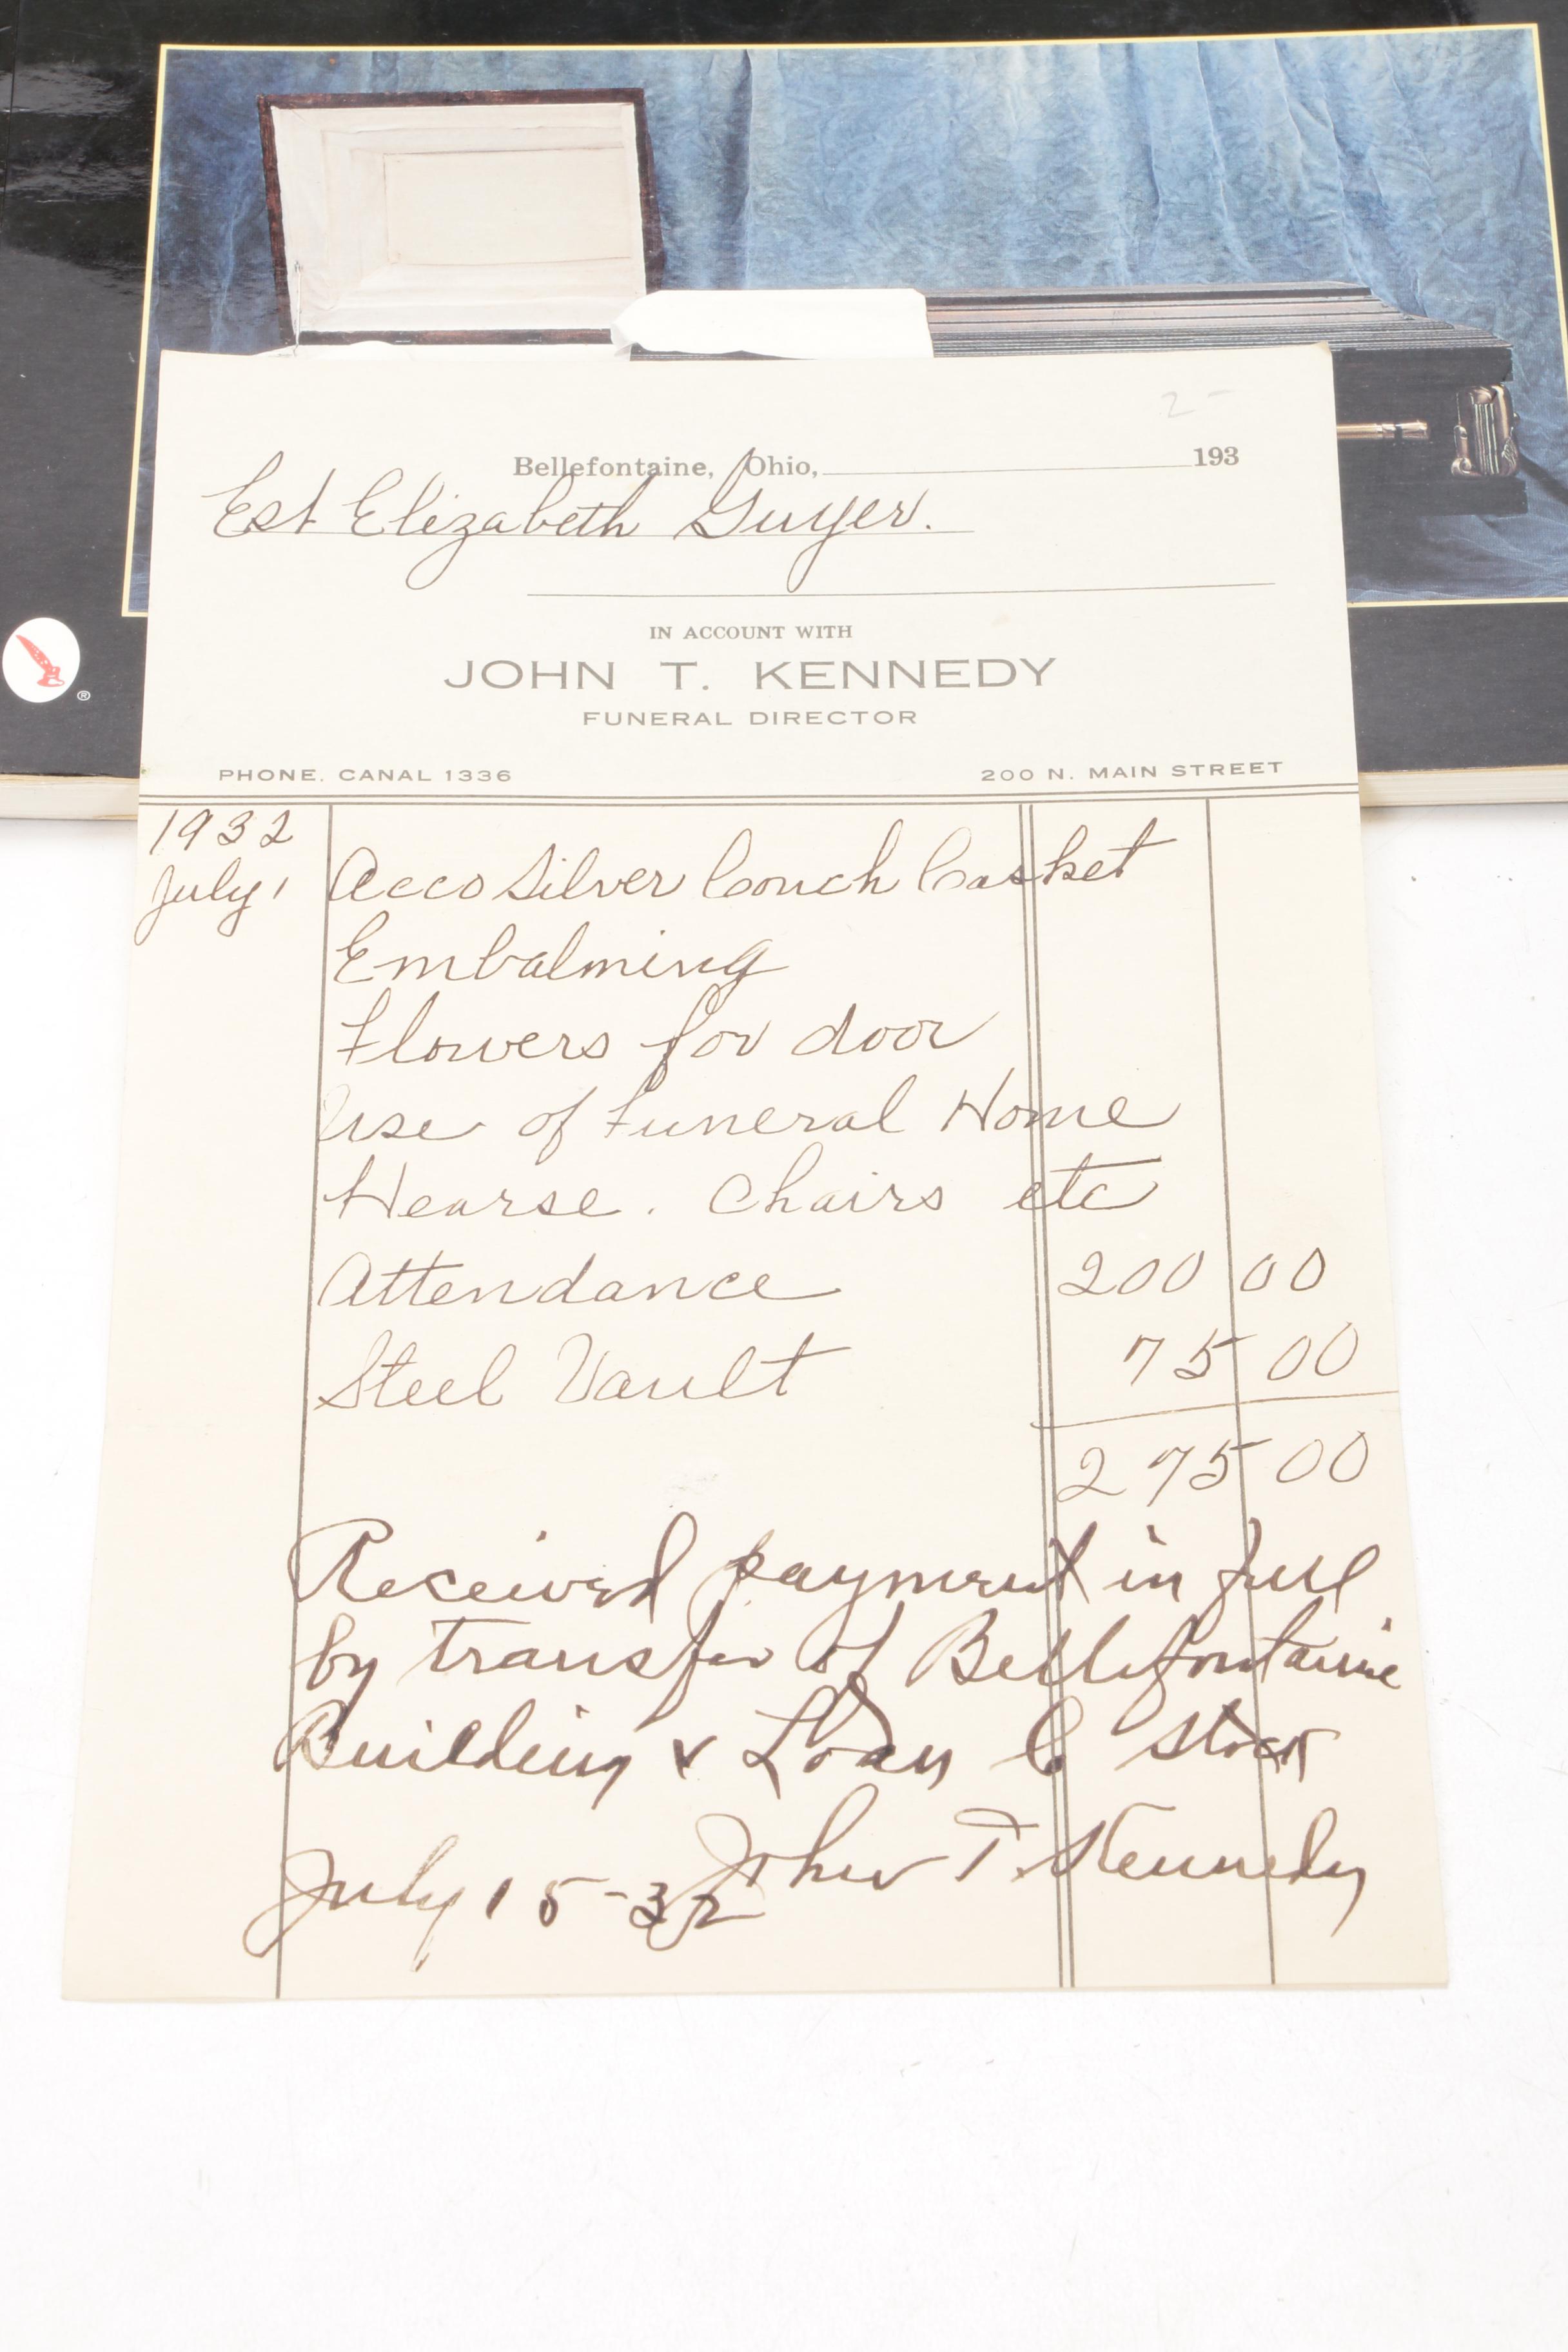 2-
Bellefontaine, Ohio, 193
Est Elizabeth Guyer.
IN ACCOUNT WITH
JOHN T. KENNEDY
FUNERAL DIRECTOR
PHONE, CANAL 1336 200 N. MAIN STREET
®
1932
July 1 Acco Silver Couch Casket
Embalming
Flowers for door
Use of Funeral Home
Hearse. Chairs etc
Attendance 200 00
Steel Vault 75 00
275 00
Received payment in full
by transfer of Bellefontaine
Building & Loan C Stock
John T. Kennedy
July 15-32